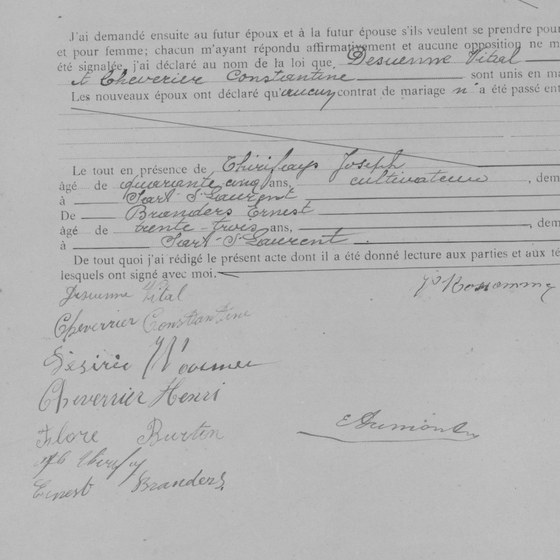 J'ai demandé ensuite au futur époux et à la futur épouse s'ils veulent se prendre pour
et pour femme; chacun m'ayant répondu affirmativement et aucune opposition ne m
été signalée, j'ai déclaré au nom de la loi que, Desuenne Vital
et Cheverier Constantine sont unis en ma
Les nouveaux époux ont déclaré qu'aucun contrat de mariage n'a été passé ent
Le tout en présence de Thirifays Joseph
âgé de quarante cinq ans, cultivateur, dem
à Sart-St-Laurent
De Branders Ernest
âgé de trente-trois ans, dem
à Sart-St-Laurent.
De tout quoi j'ai rédigé le présent acte dont il a été donné lecture aux parties et aux té
lesquels ont signé avec moi.
Desuenne Vital
Cheverrier Constantine
Désiré
Cheverrier Henri
Flore Burton
Ernest Branders